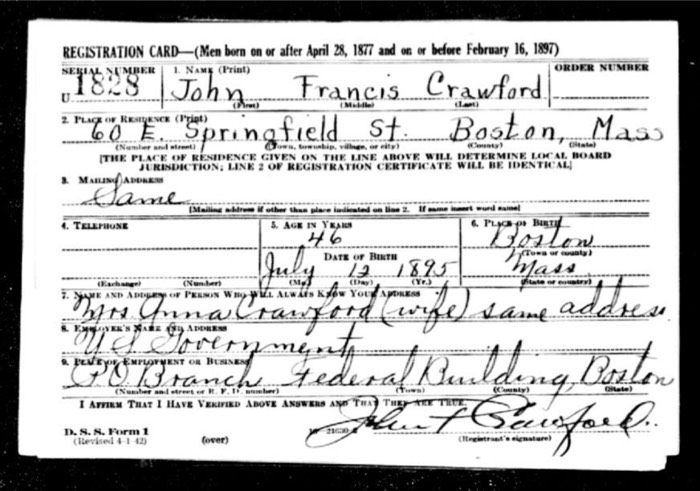 REGISTRATION CARD—(Men born on or after April 28, 1877 and on or before February 16, 1897)
SERIAL NUMBER 1. NAME (Print) ORDER NUMBER
U 1828 John Francis Crawford
(First) (Middle) (Last)
2. PLACE OF RESIDENCE (Print)
60 E. Springfield St. Boston, Mass
(Number and street) (Town, township, village, or city) (County) (State)
[THE PLACE OF RESIDENCE GIVEN ON THE LINE ABOVE WILL DETERMINE LOCAL BOARD
JURISDICTION; LINE 2 OF REGISTRATION CERTIFICATE WILL BE IDENTICAL]
3. MAILING ADDRESS
Same
[Mailing address if other than place indicated on line 2. If same insert word same]
4. TELEPHONE 5. AGE IN YEARS 6. PLACE OF BIRTH
46 Boston
DATE OF BIRTH (Town or county)
July 12 1895 Mass
(Exchange) (Number) (Mo.) (Day) (Yr.) (State or country)
7. NAME AND ADDRESS OF PERSON WHO WILL ALWAYS KNOW YOUR ADDRESS
Mrs Anna Crawford (wife) same address
8. EMPLOYER'S NAME AND ADDRESS
U S Government
9. PLACE OF EMPLOYMENT OR BUSINESS
P.O. Branch Federal Building, Boston
(Number and street or R. F. D. number) (Town) (County) (State)
I AFFIRM THAT I HAVE VERIFIED ABOVE ANSWERS AND THAT THEY ARE TRUE.
John F Crawford.
D. S. S. Form 1
(Revised 4-1-42) (over) (Registrant's signature)